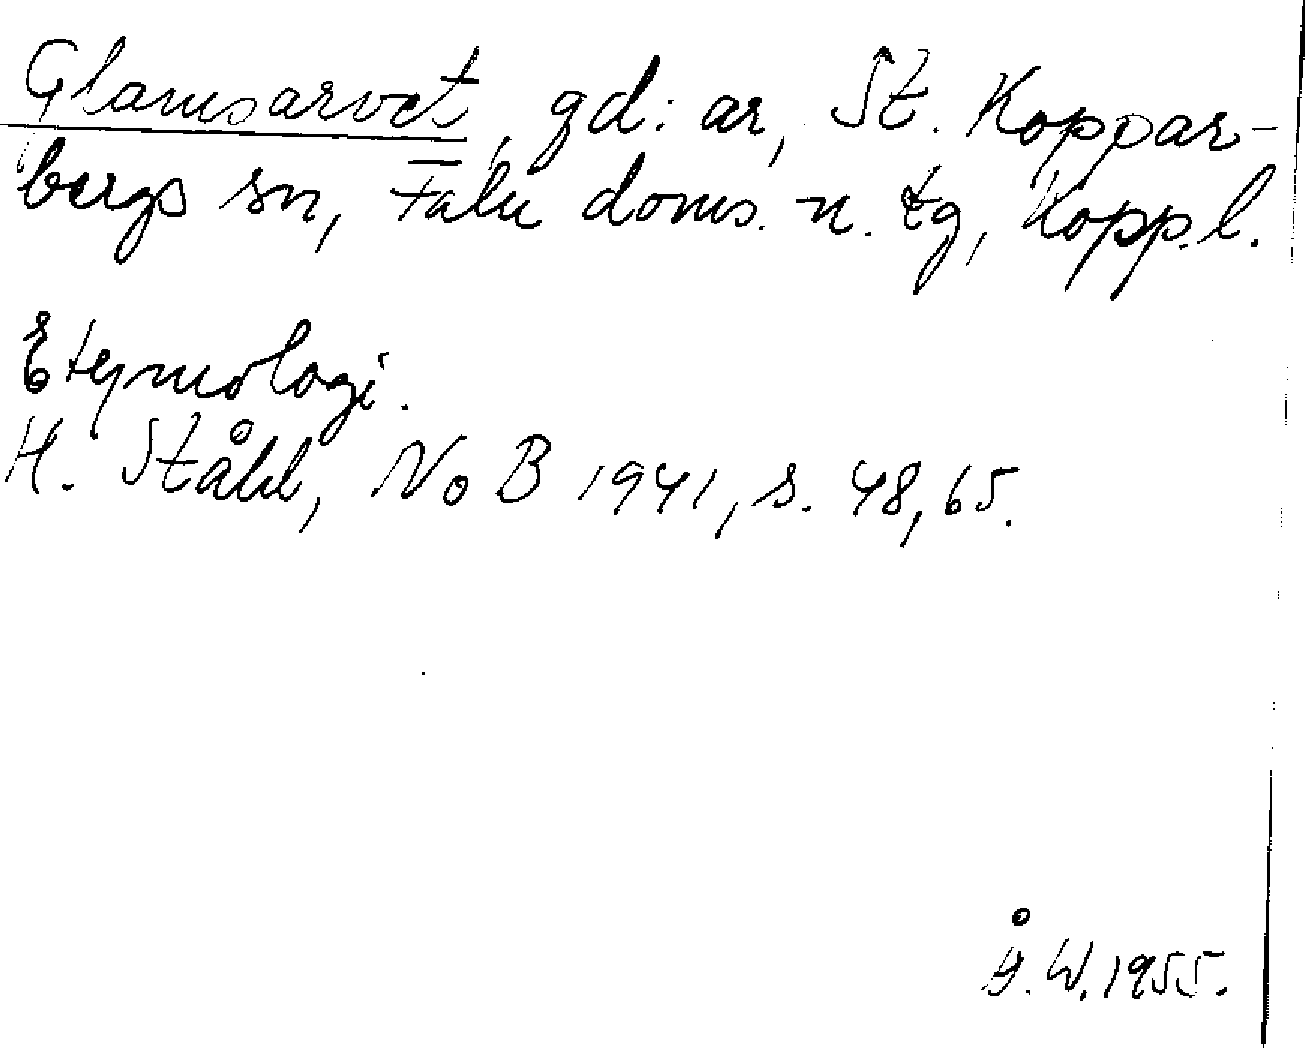 Glamsarvet, gd: ar, St. Koppar-
bergs sn, Falu doms. n. tg, Kopp. l.
Etymologi.
H. Ståhl, NoB 1941, s. 48, 65.
Å. W. 1955.